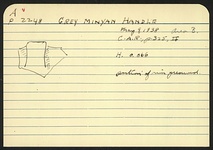 A
P 2248 GREY MINYAN HANDLE
May 5, 1938 Area 7,
C.A.R, p. 325, II
H. 0.066
portion of rim preserved.